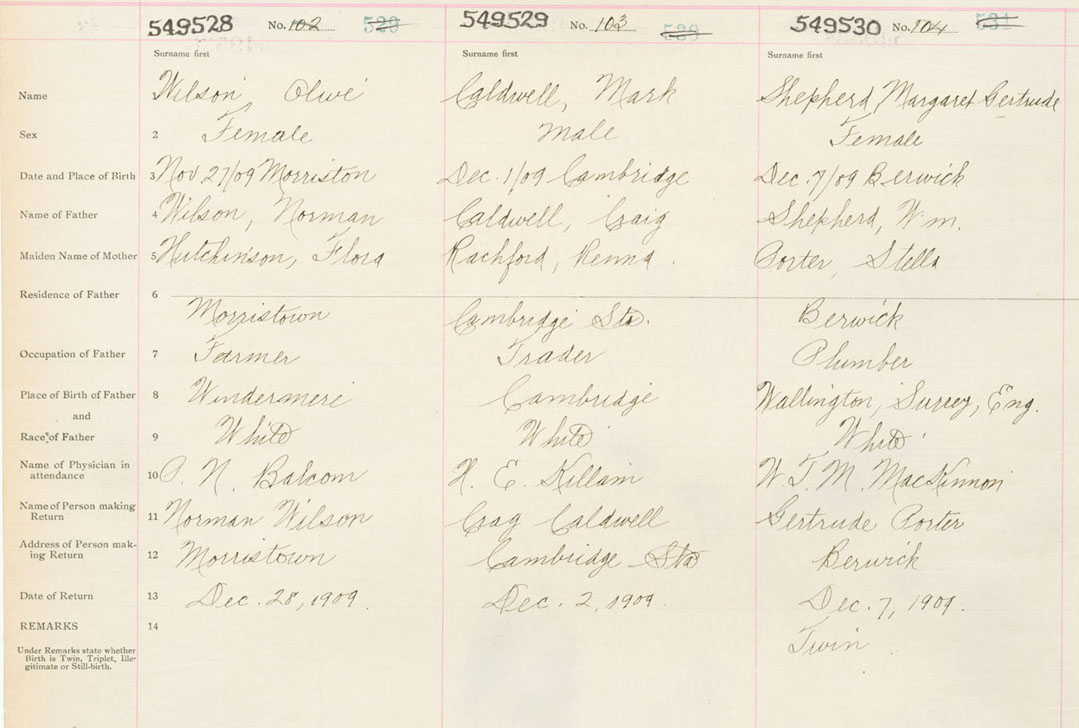 549528 No. 102 529 549529 No. 103 530 549530 No. 104 531
Surname first Surname first Surname first
Name Wilson, Olive Caldwell, Mark Shepherd, Margaret Gertrude
Sex 2 Female Male Female
Date and Place of Birth 3 Nov 27/09 Morriston Dec. 1/09 Cambridge Dec. 7/09 Berwick
Name of Father 4 Wilson, Norman Caldwell, Craig Shepherd, Wm.
Maiden Name of Mother 5 Hutchinson, Flora Rachford, Renna. Porter, Stella
Residence of Father 6
Morristown Cambridge Sta. Berwick
Occupation of Father 7 Farmer Trader Plumber
Place of Birth of Father 8 Windermere Cambridge Wallington, Surrey, Eng.
and
Race of Father 9 White White White
Name of Physician in
attendance 10 P. N. Balcom H. E. Killam W. T. M. MacKinnon
Name of Person making
Return 11 Norman Wilson Caldwell Gertrude Porter
Address of Person mak-
ing Return 12 Morristown Cambridge Sta Berwick
Date of Return 13 Dec. 28, 1909. Dec. 2, 1909. Dec. 7, 1909.
REMARKS 14
Twin
Under Remarks state whether
Birth is Twin, Triplet, Ille-
gitimate or Still-birth.